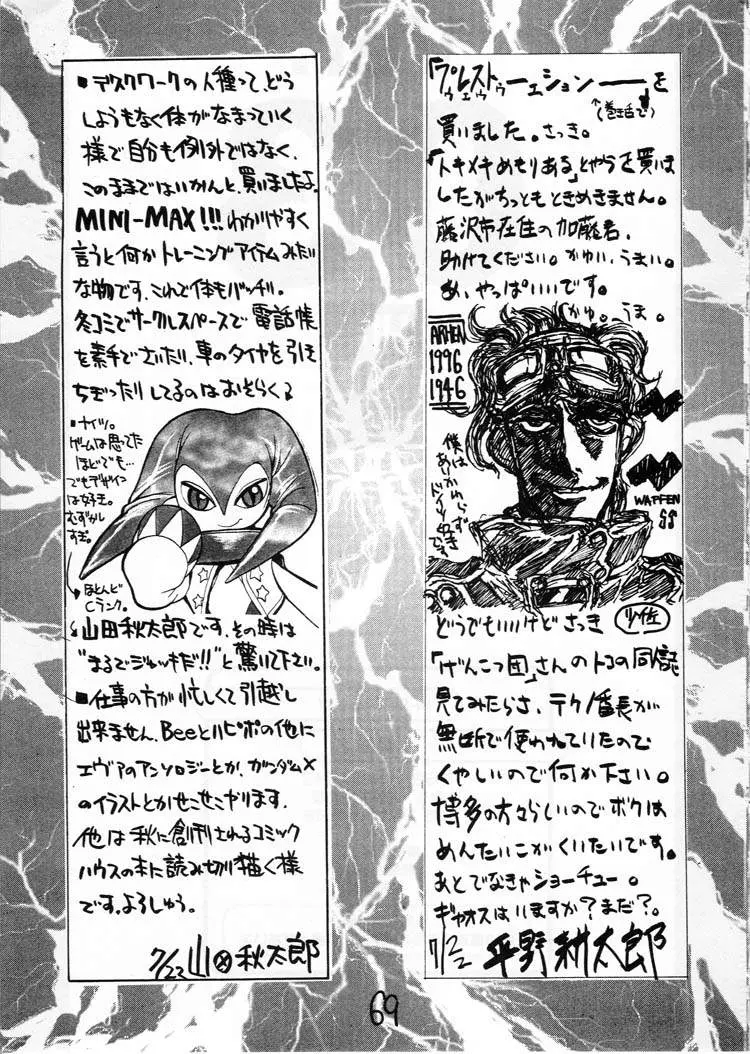 「プレストゥーエションーーを
プゥエゥトゥ
↑(巻舌で)
買いました。さっき。
「トキメキめもりある」とやらを買いま
したがちっともときめきません。
藤沢市在住の加藤君、
助けてください。かゆい、うまい。
あ、やっぱいいです。
かゆ。うま。
ARMEN
1996
1946
僕は
あいかわらず
ドイツ好き
です。
WAFFEN
SS
どうでもいいけどさっき
少佐
「げんこつ団」さんのトコの同人誌
見てみたらさ、テクノ番長が
無断で使われていたので
くやしいので何か下さい。
博多の方々らしいのでボクは
めんたいこがくいたいです。
あとでなきゃショーチュー。
ギャオスはいますか?まだ?。
7/22 平野耕太郎
■デスクワークの人種って、どう
しようもなく体がなまっていく
様で自分も例外ではなく、
このままではいかんと、買いましたよ
MINI-MAX!!! わかりやすく
言うと何かトレーニングアイテムみたい
な物です、これで体もバッチリ。
冬コミでサークルスペースで電話帳
を素手でさいたり、車のタイヤを引き
ちぎったりしてるのはおそらく
■ナイツ。
ゲームは思ってた
ほどでも…
でもデザイン
は好き。
むずかし
すぎ。
ほとんど
Cランク。
山田秋太郎です、その時は
"まるでジャッキだ!!"と驚いて下さい。
■仕事の方が忙しくて引越し
出来ません、Beeとハピポの他に
エヴァのアンソロジーとか、ガンダムX
のイラストとかせこせこやります。
他は秋に創刊されるコミック
ハウスの本に読み切り描く様
です。よろしゅう。
7/22 山⊗秋太郎
69